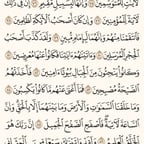 لَـَٔايَـٰتٍ لِّلْمُتَوَسِّمِينَ ۝ وَإِنَّهَا لَبِسَبِيلٍ مُّقِيمٍ ۝ إِنَّ فِى ذَٰلِكَ
لَـَٔايَةً لِّلْمُؤْمِنِينَ ۝ وَإِن كَانَ أَصْحَـٰبُ ٱلْأَيْكَةِ لَظَـٰلِمِينَ ۝
فَٱنتَقَمْنَا مِنْهُمْ وَإِنَّهُمَا لَبِإِمَامٍ مُّبِينٍ ۝ وَلَقَدْ كَذَّبَ أَصْحَـٰبُ
ٱلْحِجْرِ ٱلْمُرْسَلِينَ ۝ وَءَاتَيْنَـٰهُمْ ءَايَـٰتِنَا فَكَانُوا۟ عَنْهَا مُعْرِضِينَ ۝
وَكَانُوا۟ يَنْحِتُونَ مِنَ ٱلْجِبَالِ بُيُوتًا ءَامِنِينَ ۝ فَأَخَذَتْهُمُ
ٱلصَّيْحَةُ مُصْبِحِينَ ۝ فَمَآ أَغْنَىٰ عَنْهُم مَّا كَانُوا۟ يَكْسِبُونَ ۝
وَمَا خَلَقْنَا ٱلسَّمَـٰوَٰتِ وَٱلْأَرْضَ وَمَا بَيْنَهُمَآ إِلَّا بِٱلْحَقِّ وَإِنَّ
ٱلسَّاعَةَ لَـَٔاتِيَةٌ فَٱصْفَحِ ٱلصَّفْحَ ٱلْجَمِيلَ ۝ إِنَّ رَبَّكَ هُوَ